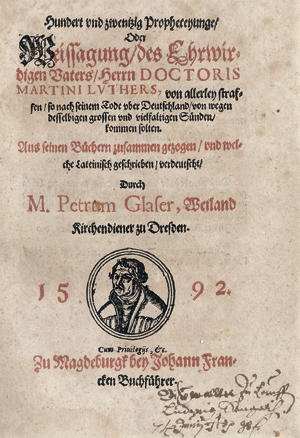 Hundert vnd zwentzig Propheceyunge/
Oder
Weissagung/des Ehrwir-
digen Vaters/Herrn DOCTORIS
MARTINI LVTHERS, von allerley straf-
fen/so nach seinem Tode vber Deutschland/von wegen
desselbigen grossen vnd vielfaltigen Sünden/
kommen solten.
Aus seinen Büchern zusammen gezogen/vnd wel-
che Lateinisch geschrieben/verdeutscht/
Durch
M. Petrum Glaser, Weiland
Kirchendiener zu Dresden.
15 92.
Cum Privilegijs &c.
Zu Magdeburgk bey Johann Fran-
cken Buchführer.